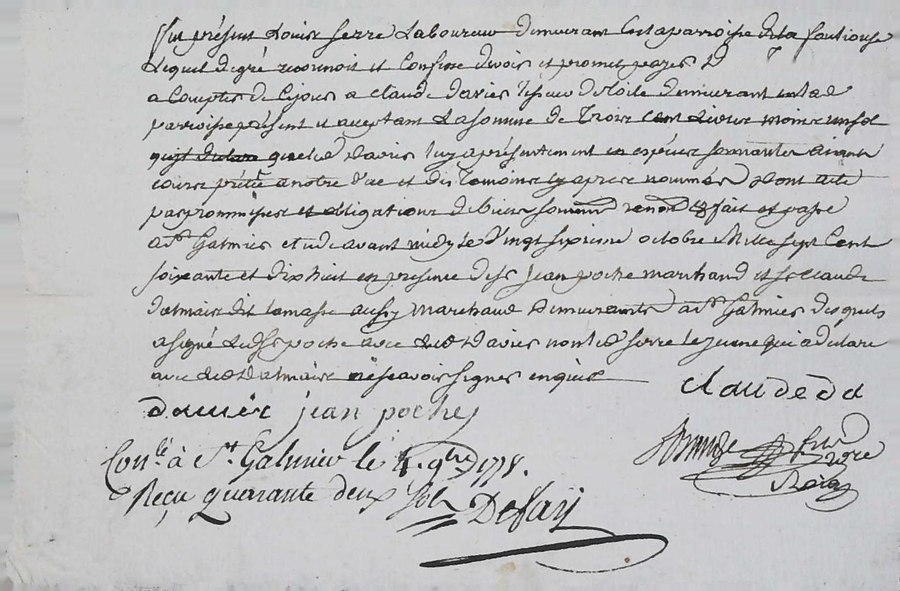 Fut présent Louis Serre Laboureur demeurant en la parroisse de la
Lequel de gré reconnoit et Confesse devoir et promet payer
a Compter de Cejour a claude davier Tisseur de toile demeurant en lad
parroisse présent et acceptant La somme de Trois Cent Livres moins un sol
quelled davier luy a présentement en espèces sonnantes ayant
cours prêtée a notre Vue et des Témoins cy après nommés Dont acte
par promesses et obligations de biens soumis renon et fait et passé
a St Galmier Etude avant midy le Vingt sixieme octobre Mille sept Cent
soixante et dix huit en présence de Sr Jean poche marchand et Sr Claude
dalmais dit lamasse aussy Marchand demeurants a St Galmier lesquels
a signé led Sr poche avec led davier non led Serre le jeune qui a déclaré
avec led dalmais ne scavoir signer enquis
Claude da
davier jean poche
Conlé à St Galmier le 4 9bre 1778.
Reçu quarante deux sols Defay